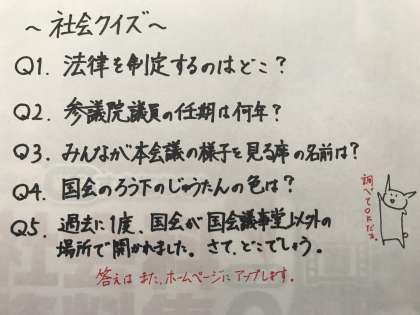 ～社会クイズ～
Q1. 法律を制定するのはどこ？
Q2. 参議院議員の任期は何年？
Q3. みんなが本会議の様子を見る席の名前は？
Q4. 国会のろう下のじゅうたんの色は？
Q5. 過去に1度、国会が国会議事堂以外の
場所で開かれました。さて、どこでしょう。
調べてOKだよ。
答えは また、ホームページに アップします。